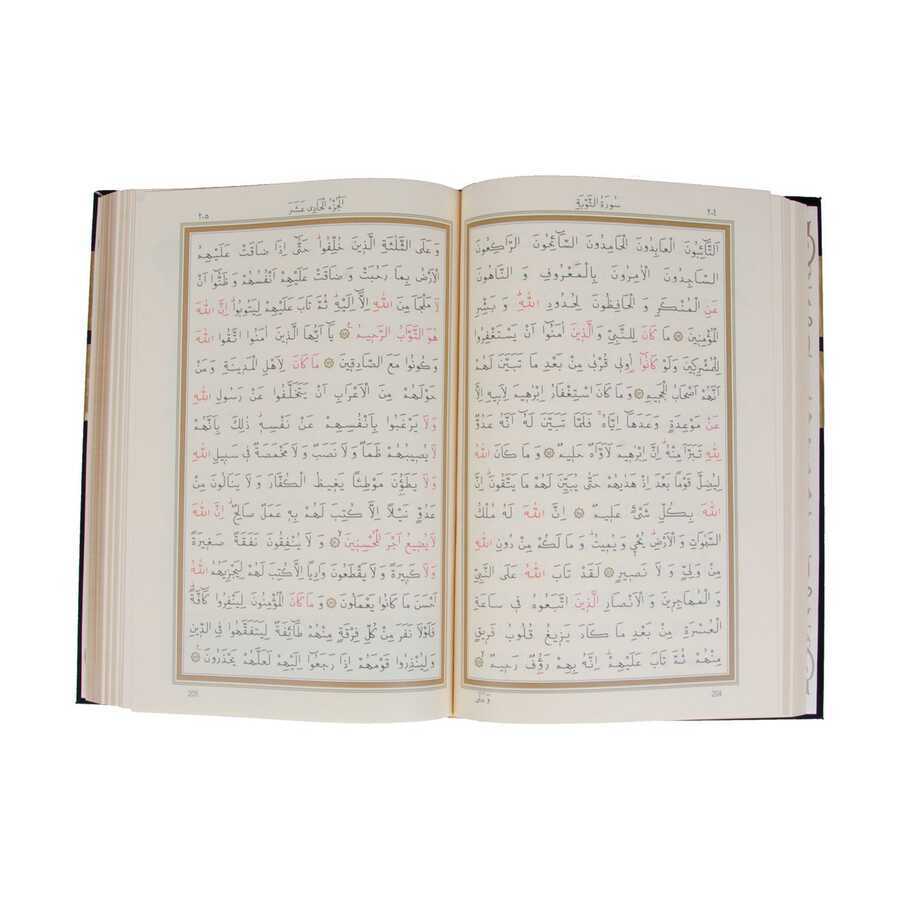 سُورَةُ التَّوْبَةِ
٢٠٤
اَلتَّٓائِبُونَ الْعَابِدُونَ الْحَامِدُونَ السَّٓائِحُونَ الرَّاكِعُونَ
السَّاجِدُونَ الْاٰمِرُونَ بِالْمَعْرُوفِ وَ النَّاهُونَ
عَنِ الْمُنْكَرِ وَ الْحَافِظُونَ لِحُدُودِ اللّٰهِۜ وَ بَشِّرِ
الْمُؤْمِنِينَ مَا كَانَ لِلنَّبِيِّ وَ الَّذِينَ اٰمَنُٓوا اَنْ يَسْتَغْفِرُوا
لِلْمُشْرِكِينَ وَلَوْ كَانُٓوا اُولِي قُرْبٰى مِنْ بَعْدِ مَا تَبَيَّنَ لَهُمْ
اَنَّهُمْ اَصْحَابُ الْجَحِيمِ وَ مَا كَانَ اسْتِغْفَارُ اِبْرٰهِيمَ لِاَبِيهِ اِلَّا
عَنْ مَوْعِدَةٍ وَعَدَهَٓا اِيَّاهُۚ فَلَمَّا تَبَيَّنَ لَهُٓ اَنَّهُ عَدُوٌّ
لِلّٰهِ تَبَرَّاَ مِنْهُۜ اِنَّ اِبْرٰهِيمَ لَاَوَّاهٌ حَلِيمٌ وَ مَا كَانَ اللّٰهُ
لِيُضِلَّ قَوْمًا بَعْدَ اِذْ هَدٰيهُمْ حَتّٰى يُبَيِّنَ لَهُمْ مَا يَتَّقُونَۜ اِنَّ
اللّٰهَ بِكُلِّ شَيْءٍ عَلِيمٌ اِنَّ اللّٰهَ لَهُ مُلْكُ
السَّمٰوَاتِ وَ الْاَرْضِۜ يُحْيِ وَ يُمِيتُۜ وَ مَا لَكُمْ مِنْ دُونِ اللّٰهِ
مِنْ وَلِيٍّ وَ لَا نَصِيرٍ لَقَدْ تَابَ اللّٰهُ عَلَى النَّبِيِّ
وَ الْمُهَاجِرِينَ وَ الْاَنْصَارِ الَّذِينَ اتَّبَعُوهُ فِي سَاعَةِ
الْعُسْرَةِ مِنْ بَعْدِ مَا كَادَ يَزِيغُ قُلُوبُ فَرِيقٍ
مِنْهُمْ ثُمَّ تَابَ عَلَيْهِمْۜ اِنَّهُ بِهِمْ رَؤُفٌ رَحِيمٌ
204
وَ عَلَى
اَلْجُزْءُ الْحَادِي عَشَرَ
٢٠٥
وَ عَلَى الثَّلٰثَةِ الَّذِينَ خُلِّفُواۜ حَتّٰٓى اِذَا ضَاقَتْ عَلَيْهِمُ
الْاَرْضُ بِمَا رَحُبَتْ وَ ضَاقَتْ عَلَيْهِمْ اَنْفُسُهُمْ وَ ظَنُّٓوا اَنْ
لَا مَلْجَاَ مِنَ اللّٰهِ اِلَّٓا اِلَيْهِۜ ثُمَّ تَابَ عَلَيْهِمْ لِيَتُوبُواۜ اِنَّ اللّٰهَ
هُوَ التَّوَّابُ الرَّحِيمُ يَٓا اَيُّهَا الَّذِينَ اٰمَنُوا اتَّقُوا اللّٰهَ
وَ كُونُوا مَعَ الصَّادِقِينَ مَا كَانَ لِاَهْلِ الْمَدِينَةِ وَ مَنْ
حَوْلَهُمْ مِنَ الْاَعْرَابِ اَنْ يَتَخَلَّفُوا عَنْ رَسُولِ اللّٰهِ
وَلَا يَرْغَبُوا بِاَنْفُسِهِمْ عَنْ نَفْسِهِۜ ذٰلِكَ بِاَنَّهُمْ
لَا يُصِيبُهُمْ ظَمَأٌ وَ لَا نَصَبٌ وَ لَا مَخْمَصَةٌ فِي سَبِيلِ اللّٰهِ
وَلَا يَطَؤُنَ مَوْطِئًا يَغِيظُ الْكُفَّارَ وَ لَا يَنَالُونَ مِنْ
عَدُوٍّ نَيْلًا اِلَّا كُتِبَ لَهُمْ بِهِ عَمَلٌ صَالِحٌۜ اِنَّ اللّٰهَ
لَا يُضِيعُ اَجْرَ الْمُحْسِنِينَ وَ لَا يُنْفِقُونَ نَفَقَةً صَغِيرَةً
وَلَا كَبِيرَةً وَ لَا يَقْطَعُونَ وَادِيًا اِلَّا كُتِبَ لَهُمْ لِيَجْزِيَهُمُ اللّٰهُ
اَحْسَنَ مَا كَانُوا يَعْمَلُونَ وَ مَا كَانَ الْمُؤْمِنُونَ لِيَنْفِرُوا كَٓافَّةًۜ
فَلَوْلَا نَفَرَ مِنْ كُلِّ فِرْقَةٍ مِنْهُمْ طَٓائِفَةٌ لِيَتَفَقَّهُوا فِي الدِّينِ
وَ لِيُنْذِرُوا قَوْمَهُمْ اِذَا رَجَعُٓوا اِلَيْهِمْ لَعَلَّهُمْ يَحْذَرُونَ
205